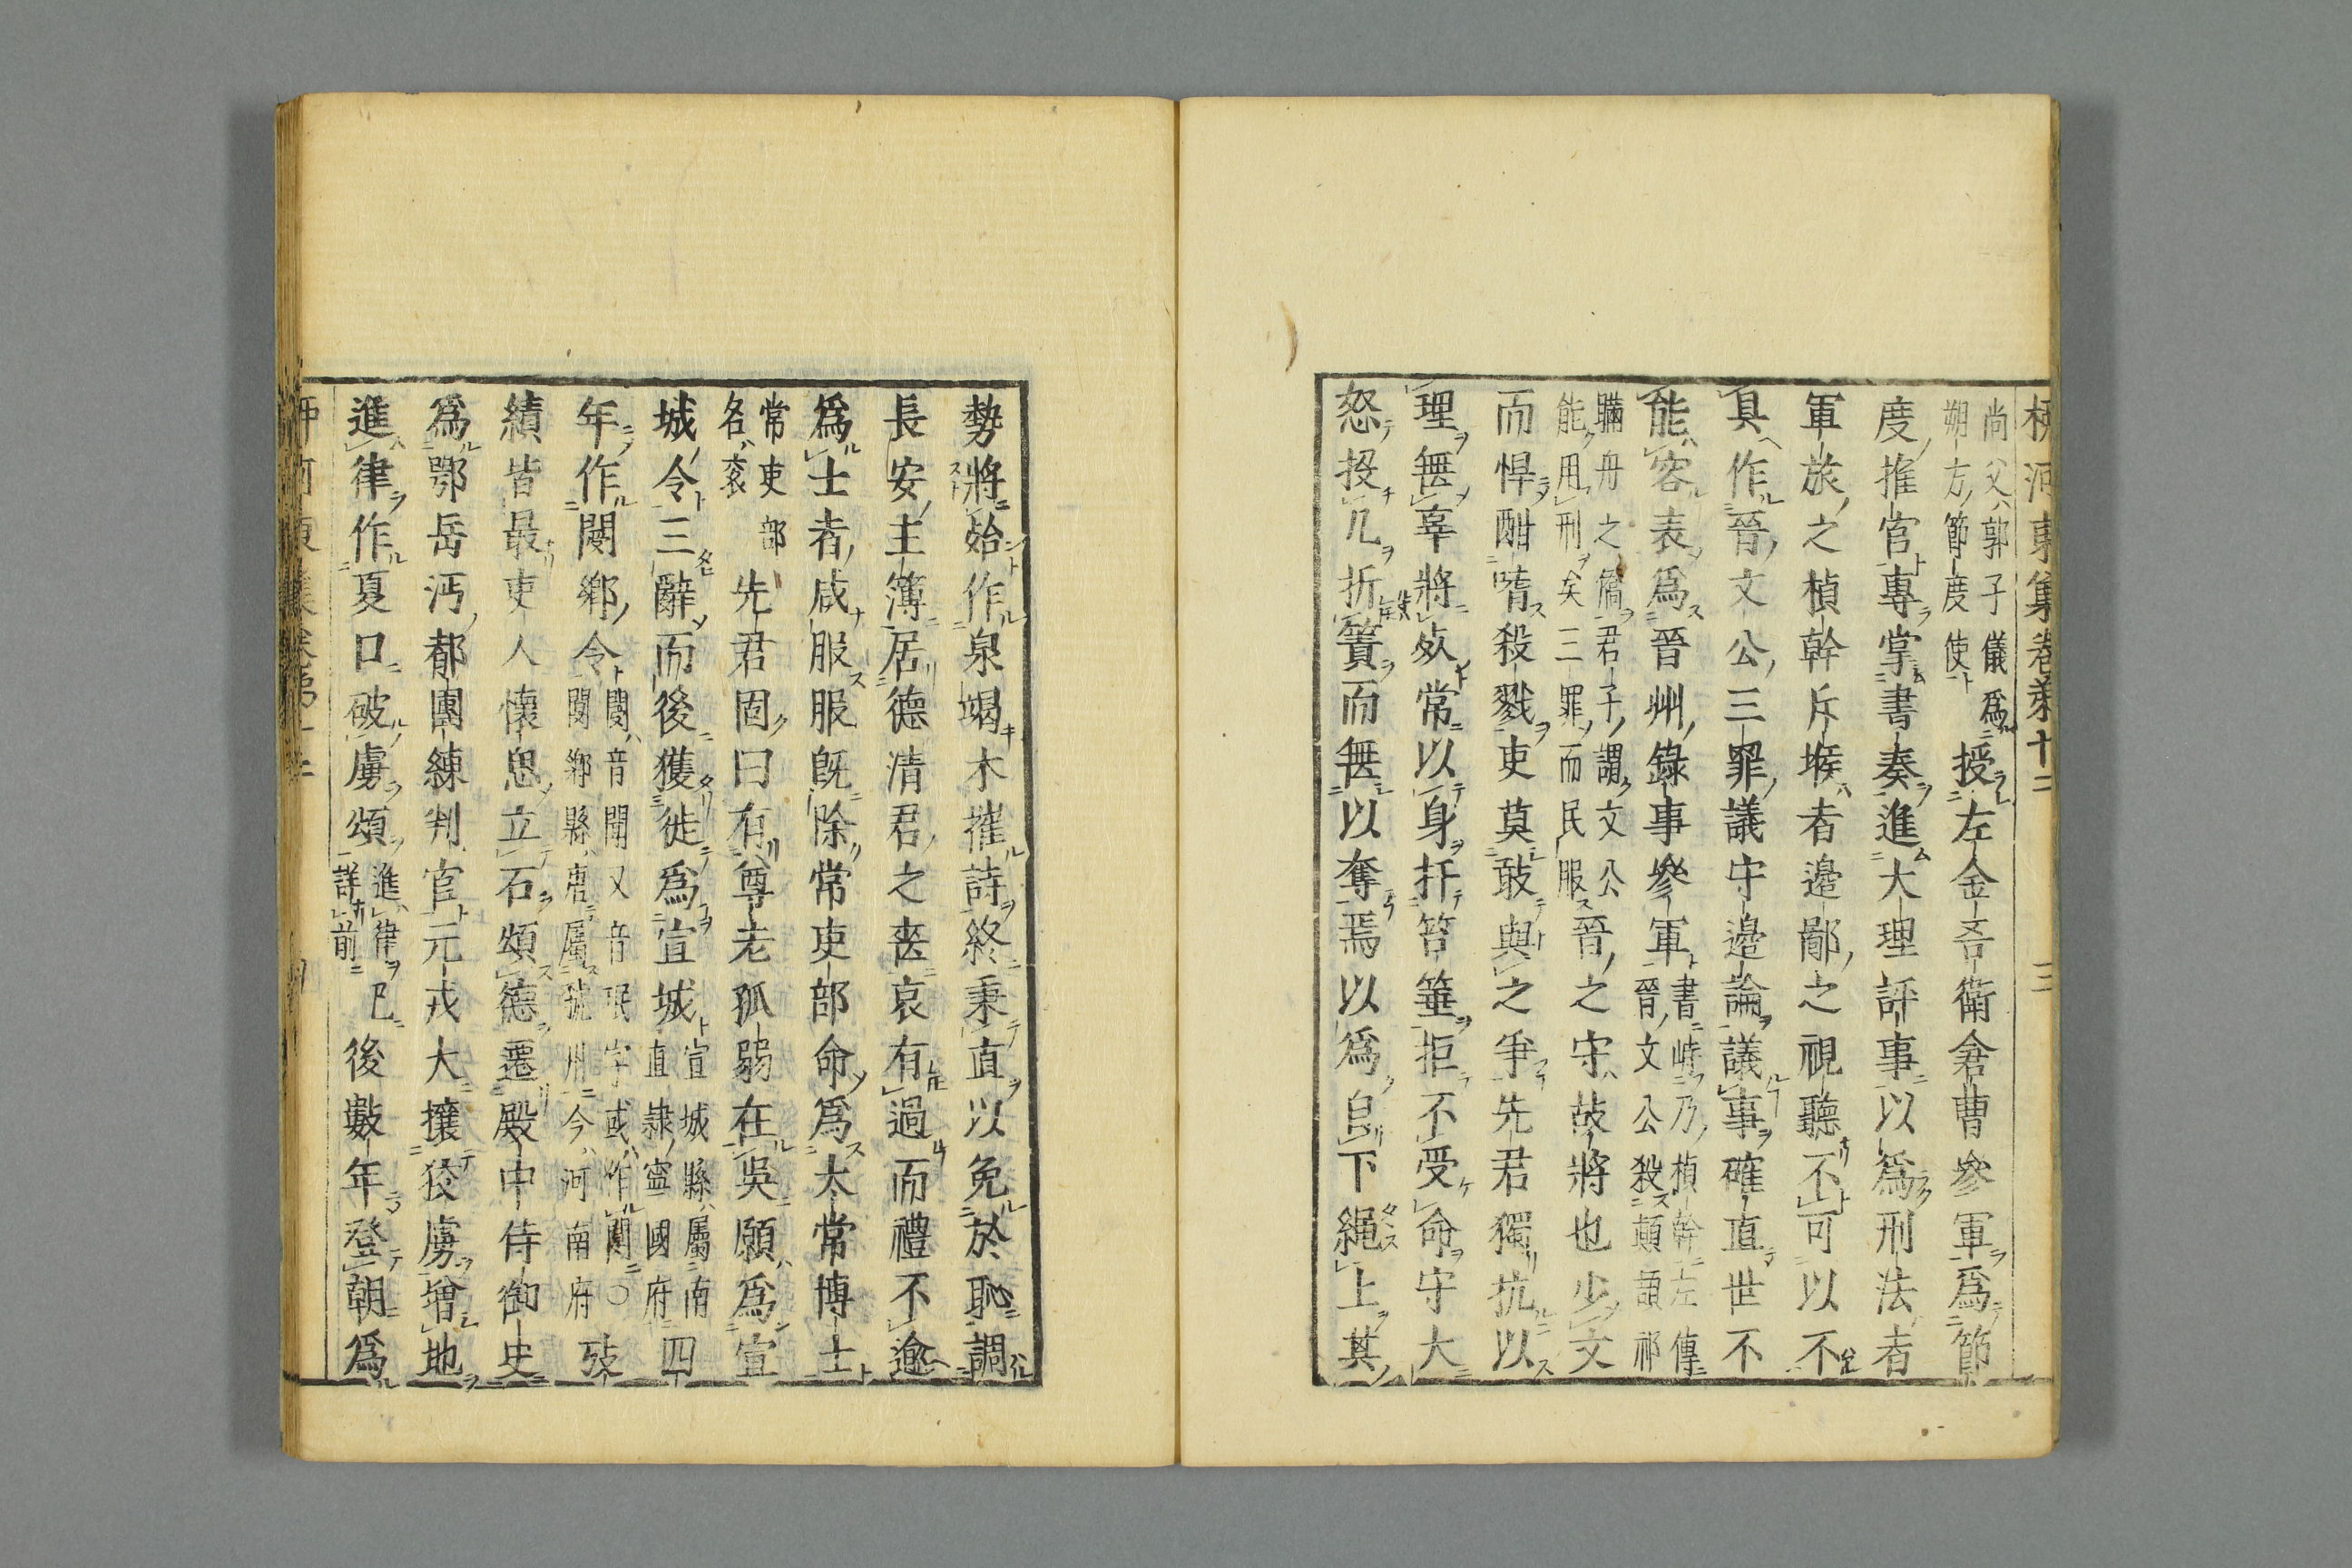 柳河東集卷第十二 三
尚父郭子儀爲朔方節度使授左金吾衛倉曹參軍爲節
度推官專掌書奏進大理評事以爲刑法者
軍旅之楨幹斥堠者邊鄙之視聽不可以不
具作晉文公三罪議守邊論議事確直世不
能容表爲晉州錄事參軍書峙乃楨幹左傳晉文公殺顛頡祁
瞞舟之僑君子謂文公能用刑矣三罪而民服晉之守故將也少文
而悍酣嗜殺戮吏莫敢與之爭先君獨抗以
理無辜將死常以身扞笞箠拒不受命守大
怒投几折簀而無以奪焉以爲自下繩上其
勢將殆作泉竭木摧詩終秉直以免於恥調
長安主簿居德清君之喪哀有過而禮不逾
爲士者咸服服既除常吏部命爲太常博士
常吏部名袞先君固曰有尊老孤弱在吳願爲宣
城令三辭而後獲徙爲宣城宣城縣屬南直隷寧國府四
年作閿鄉令閿音聞又音珉字或作閺〇閿鄉縣唐屬虢州今河南府考
績皆最吏人懷思立石頌德遷殿中侍御史
爲鄂岳沔都團練判官元戎大攘狡虜增地
進律作夏口破虜頌進律已詳前後數年登朝爲